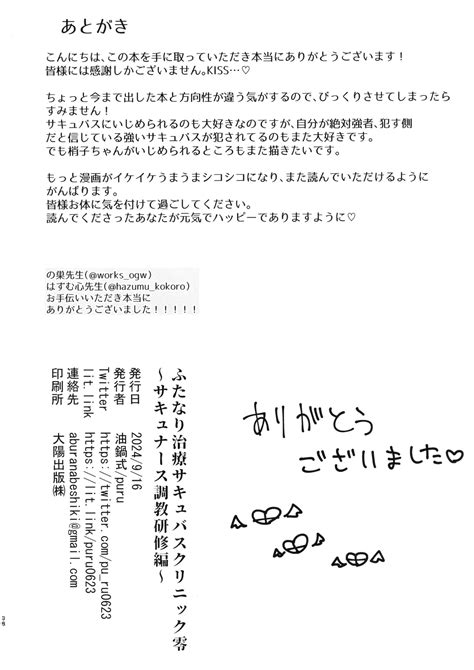 あとがき
こんにちは、この本を手に取っていただき本当にありがとうございます！
皆様には感謝しかございません。KISS…♡
ちょっと今まで出した本と方向性が違う気がするので、びっくりさせてしまったら
すみません！
サキュバスにいじめられるのも大好きなのですが、自分が絶対強者、犯す側
だと信じている強いサキュバスが犯されてるのもまた大好きです。
でも梢子ちゃんがいじめられるところもまた描きたいです。
もっと漫画がイケイケうまうまシコシコになり、また読んでいただけるように
がんばります。
皆様お体に気を付けて過ごしてください。
読んでくださったあなたが元気でハッピーでありますように♡
の巣先生(@works_ogw)
はずむ心先生(@hazumu_kokoro)
お手伝いいただき本当に
ありがとうございました！！！！！
ふたなり治療サキュバスクリニック零
～サキュナース調教研修編～
発行日 2024/9/16
発行者 油鍋式/puru
Twitter https://twitter.com/pu_ru0623
lit.link https://lit.link/puru0623
連絡先 aburanabeshiki@gmail.com
印刷所 大陽出版㈱
ありがとう
ございました♡